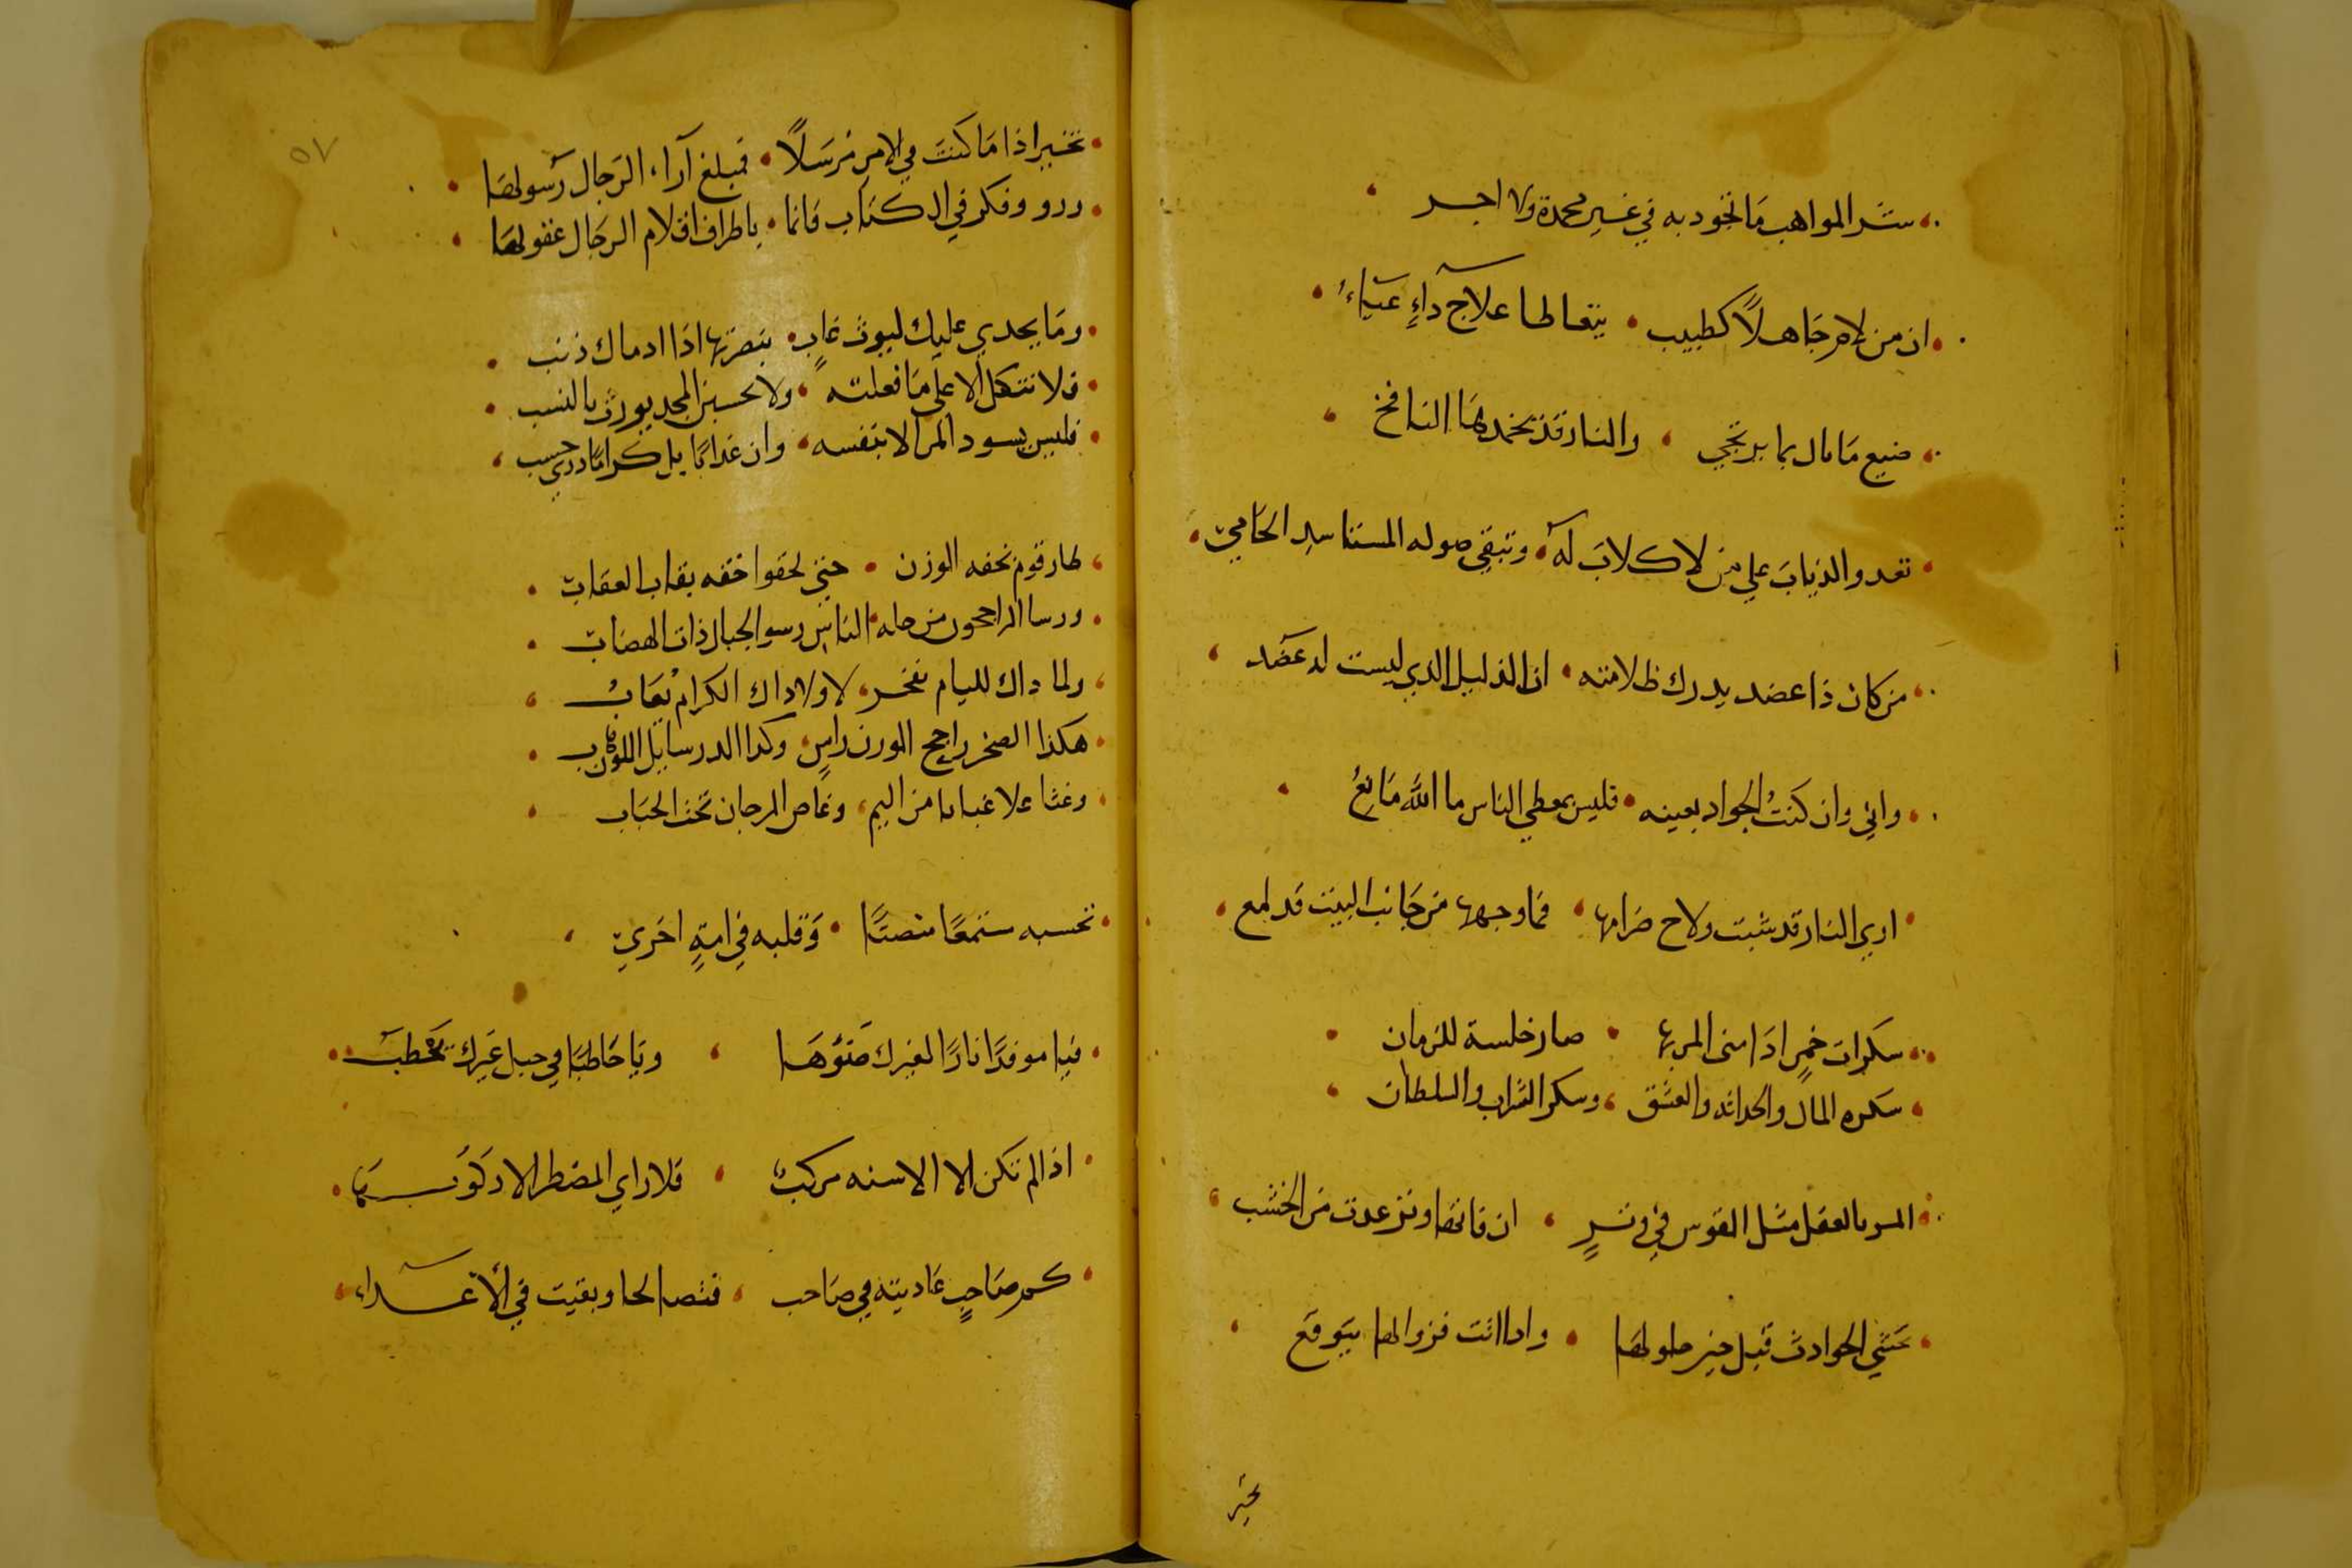 شر المواهب ما تجود به في غير محمدة ولا اجر
ان من لام جاهلا كطبيب • يتعاطا علاج دآءٍ عيآء
ضيع ما نال بما يرتجي • والنار قد يخمدها النافخ
تعدو الذياب علي من لا كلاب له • وتبقي صوله المستاسد الحامي
من كان ذا عضد يدرك ظلامته • ان الذليل الدي ليست له عضد
واني وان كنت الجواد بعينه • فليس بمعطي الناس ما الله مانع
اري النار قد شبت ولاح ضرامها • فما وجهها من جانب البيت قد لمع
سكرات خمس اذا مني المر بها • صار خلسة للزمان
سكره المال والحداثه والعشق • وسكر الشراب والسلطان
المر بالعقل مثل القوس في وترٍ • ان فاتها وتر عدت من الخشب
تخشي الحوادث قبل حين حلولها • وادا اتت فزوالها يتوقع
تخير
٥٧
تخير اذا ما كنت في الامر مرسلاً • فمبلغ آراء الرجال رسولها
وردد وفكر في الكتاب فانما • باطراف اقلام الرجال عقولها
وما يجدي عليك ليوث غابٍ • بنصرتها اذا ادماك ذئب
فلا تتكل الا علي ما فعلته • ولا تحسبن المجد يورث بالنسب
فليس يسود المر الا بنفسه • وان عد ابايا كراما ذوي حسب
طار قوم بخفه الوزن • حتي لحقوا خفه بقاب العقاب
ورسا الراجحون من جله • الناس رسو الجبال ذات الهضاب
ولما داك لليام بفخر • لا ولا داك الكرام بعاب
هكذا الصخر راجح الوزن راسٍ • وكدا الدر سايل الوزن هاب
وغثا علا عبابا من اليم • وغاص المرجان تحت الحباب
تحسبه مستمعًا منصتًا • وقلبه في امةٍ اخري
فيا موقدًا نارًا لغيرك ضوؤها • ويا حاطبًا في حبل غيرك تحطب
اذا لم تكن الا الاسنه مركبٌ • فلا راي للمضطر الا ركوبها
كم صاحبٍ عاديته في صاحب • فتصالحا وبقيت في الأعداء